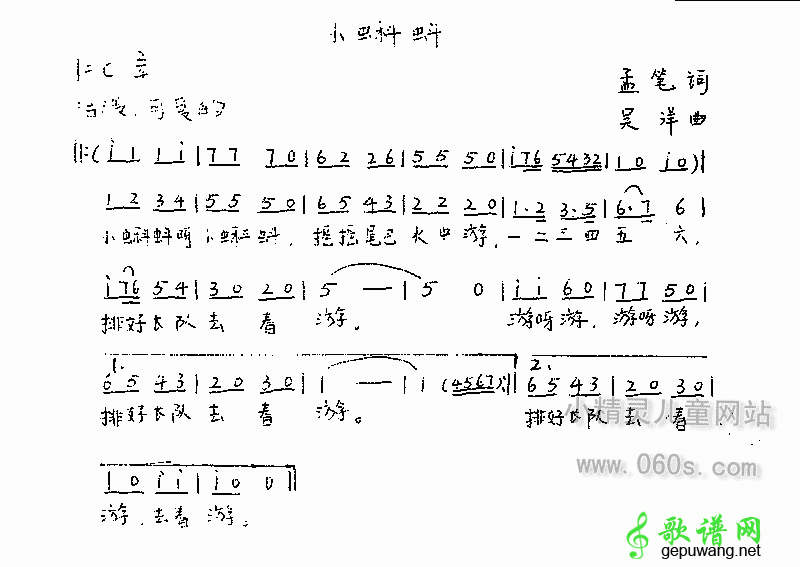 小蝌蚪
1=C 2/4
孟笔词
活泼、可爱的
吴洋曲
‖:( i i i i | 7 7 7 0 | 6 2 2 6 | 5 5 5 0 | i76 5432 | 1 0 i 0 ) |
1 2 3 4 | 5 5 5 0 | 6 5 4 3 | 2 2 2 0 | 1·2 3·5 | 6·7 6 |
小蝌蚪呀小蝌蚪，摇摇尾巴水中游，一二三四五六，
i76 5 4 | 3 0 2 0 | 5 — | 5 0 | i i 6 0 | 7 7 5 0 |
排好长队去看游。游呀游，游呀游，
1.
2.
6 5 4 3 | 2 0 3 0 | i — | i (4567) :‖ 6 5 4 3 | 2 0 3 0 |
排好长队去看游。排好长队去看
小精灵儿童网站
www.060s.com
i 0 i i | i 0 0 ‖
游，去看游。
歌谱网
gepuwang.net